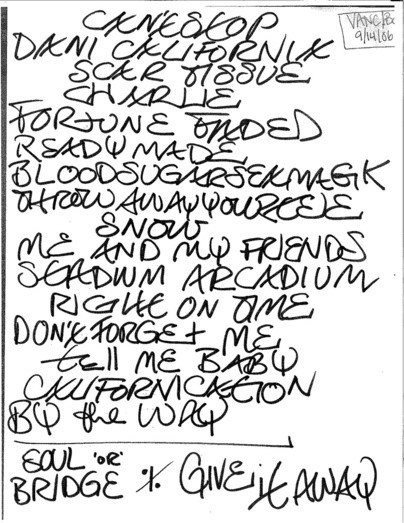 VANC, BC
9/14/06
CAN'T STOP
DANI CALIFORNIA
SCAR TISSUE
CHARLIE
FORTUNE FADED
READYMADE
BLOODSUGARSEXMAGIK
THROW AWAY YOUR TELE
SNOW
ME AND MY FRIENDS
STADIUM ARCADIUM
RIGHT ON TIME
DON'T FORGET ME
tell ME BABY
CALIFORNICATION
BY the WAY
SOUL 'OR'
BRIDGE % GIVE it AWAY